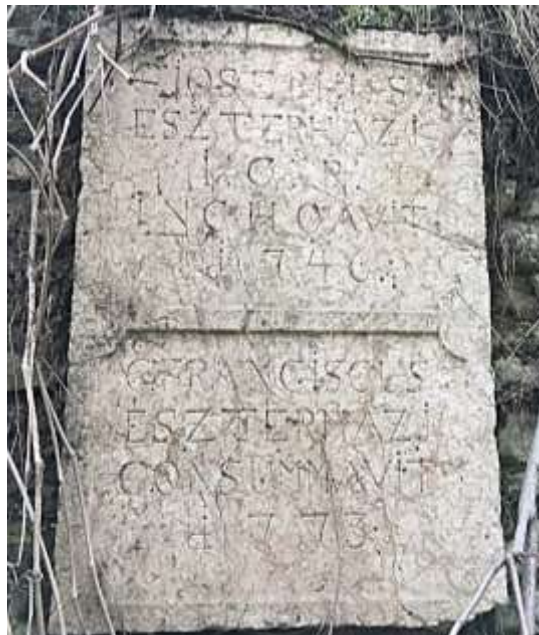 JOSEPHUS
ESZTERHAZI
I. C. R.
INCHOAVIT
1746
G FRANCISCUS
ESZTERHAZI
CONSUMMAVIT
1773